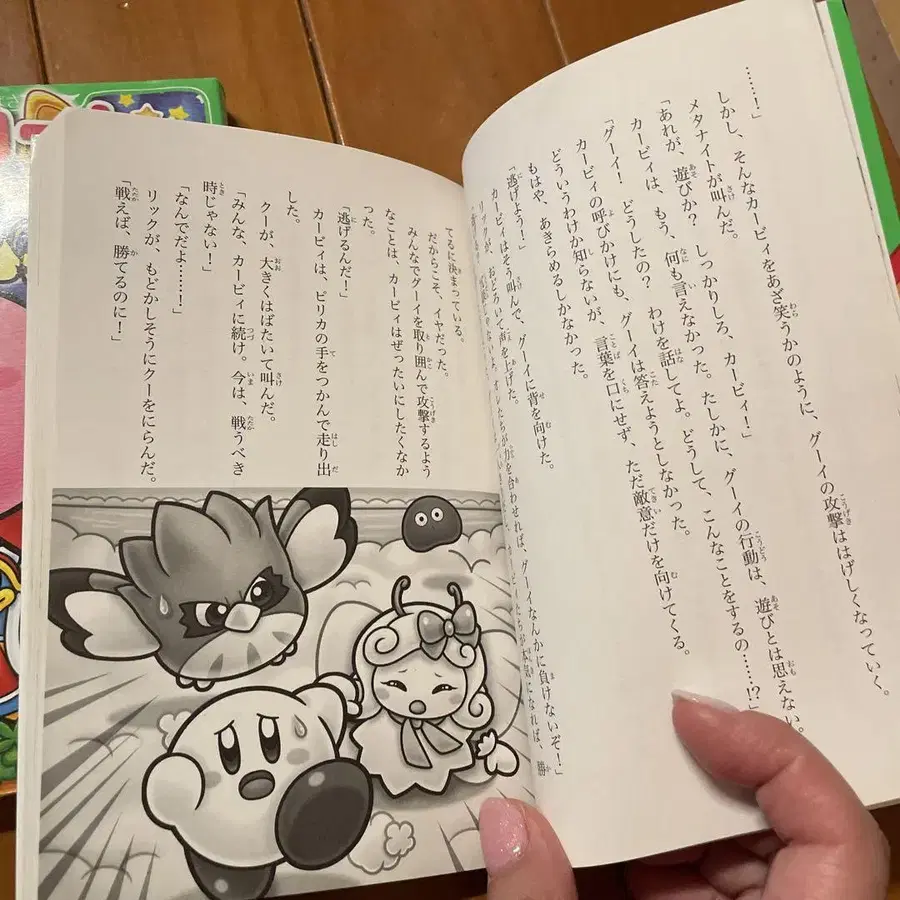 ……！」
しかし、そんなカービィをあざ笑うかのように、グーイの攻撃ははげしくなっていく。
メタナイトが叫んだ。
「あれが、遊びか？　しっかりしろ、カービィ！」
カービィは、もう、何も言えなかった。たしかに、グーイの行動は、遊びとは思えない。
「グーイ！　どうしたの？　わけを話してよ。どうして、こんなことをするの……!?」
カービィの呼びかけにも、グーイは答えようとしなかった。
どういうわけか知らないが、言葉を口にせず、ただ敵意だけを向けてくる。
もはや、あきらめるしかなかった。
「逃げよう！」
カービィはそう叫んで、グーイに背を向けた。
リックが、おどろいて声を上げた。
オレたちが力を合わせれば、グーイなんかに負けないぞ！」
たちが本気になれば、勝
てるに決まっている。
だからこそ、イヤだった。
みんなでグーイを取り囲んで攻撃するよう
なことは、カービィはぜったいにしたくなか
った。
「逃げるんだ！」
カービィは、ピリカの手をつかんで走り出
した。
クーが、大きくはばたいて叫んだ。
「みんな、カービィに続け。今は、戦うべき
時じゃない！」
「なんでだよ……！」
リックが、もどかしそうにクーをにらんだ。
「戦えば、勝てるのに！」